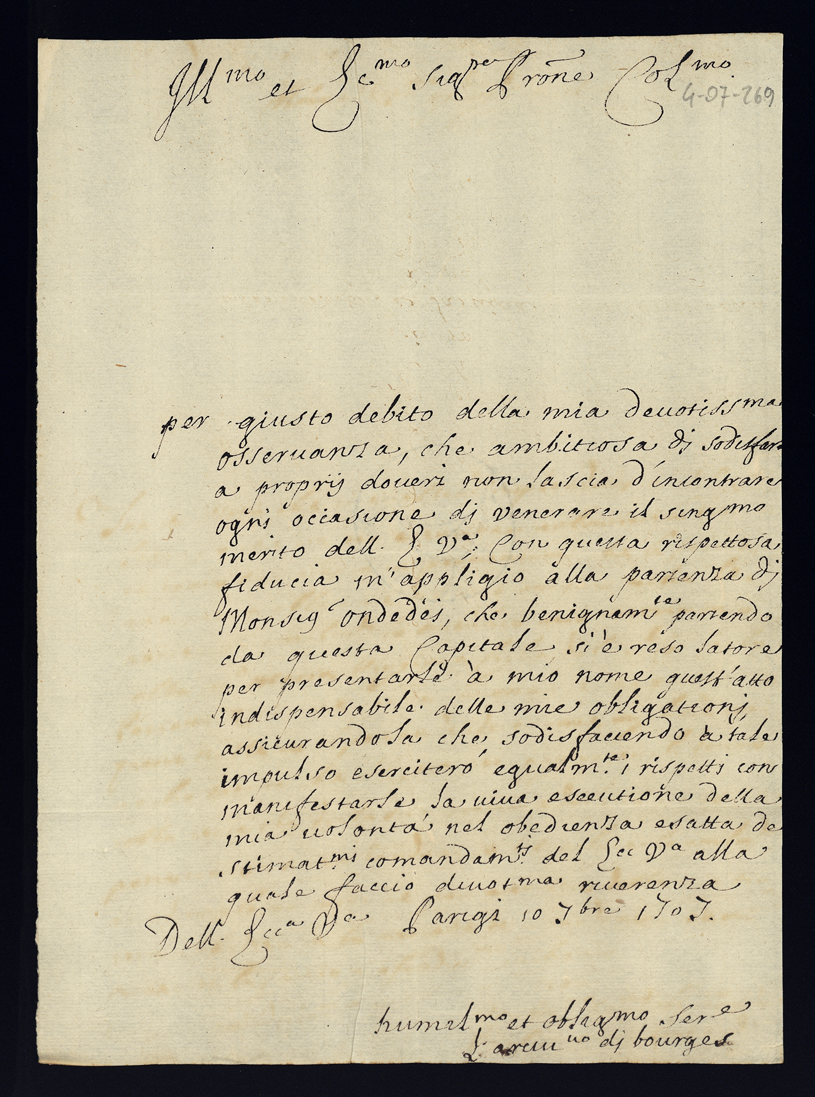 Ill mo et Ecc mo sig re Prone Col mo
4-07-269
per giusto debito della mia deuotiss ma
osseruanza, che ambitiosa dj sodisfare
a proprij doueri non lascia d'incontrare
ogni occasione dj venerare il singmo
merito dell. E. V a; Con questa rispettosa
fiducia m'appligio alla partenza dj
Monsig r ondedei, che benignam te partendo
da questa Capitale si è reso latore
per presentarle à mio nome quest'atto
indispensabile delle mie obligationj
assicurandola che sodisfaciendo à tale
impulso eserciterò egualm te i rispetti con
manifestarle la viua esecutione della
mia uolontà nel obedienza esatta de
stimat mi comandam ti del Ecc V a alla
quale faccio diuot ma riuerenza
Dell. Ecc a V a Parigi 10 7bre 1707.
humil mo et obligmo ser e
L'arciu uo dj bourges